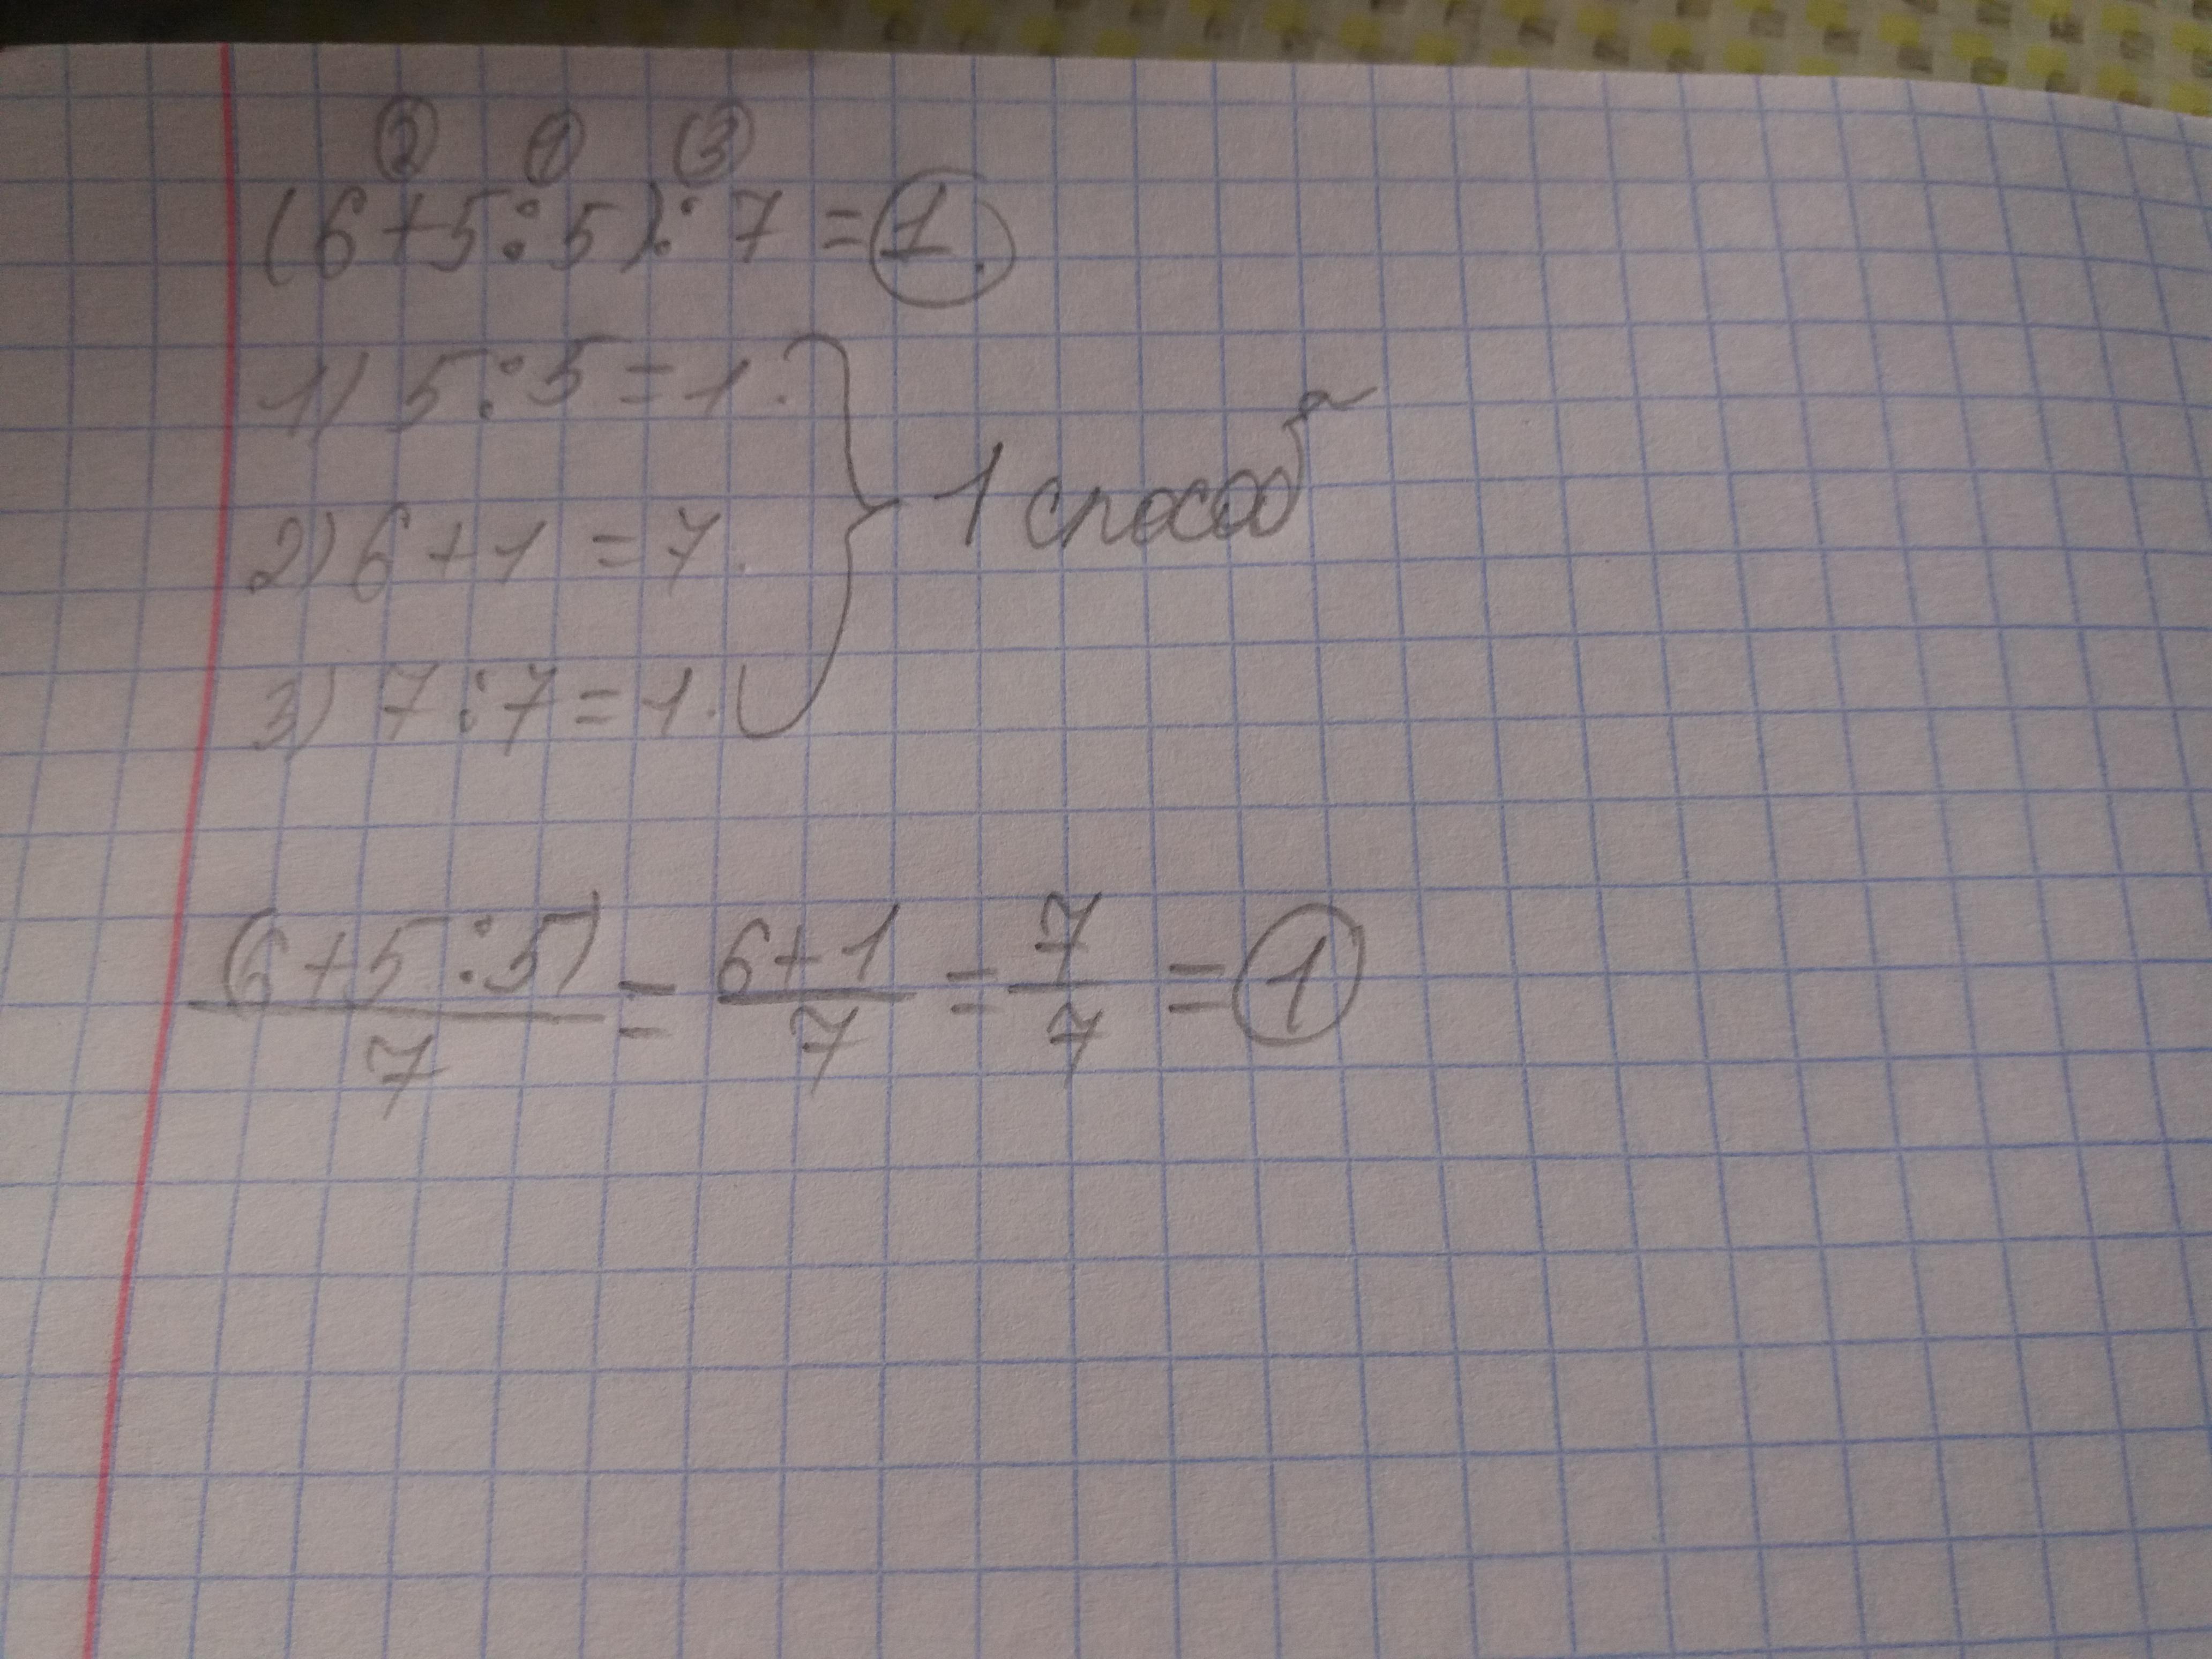 ② ① ③
(6+5:5):7=1.
1) 5:5=1.
1 способ
2) 6+1=7.
3) 7:7=1.
(6+5:5)/7 = (6+1)/7 = 7/7 = 1